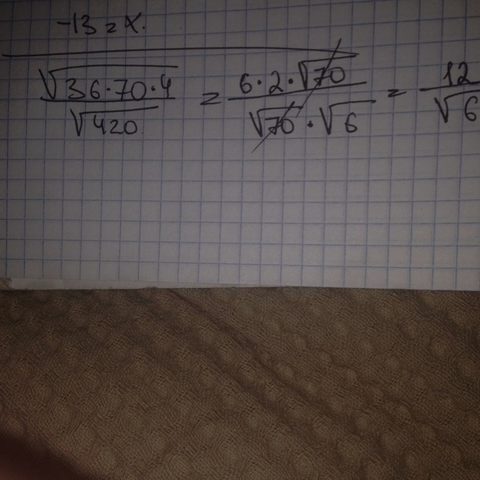 -13 = x.
√(36·70·4) / √420 = 6·2·√70 / √70·√6 = 12 / √6